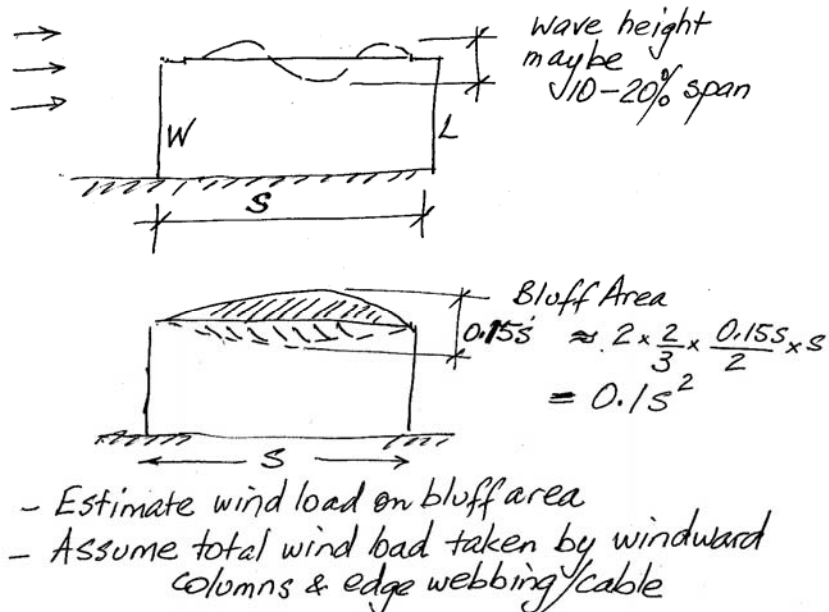 wave height
maybe
10-20% span
W
L
S
Bluff Area
0.15s ≈ 2 × 2/3 × 0.15s/2 × s
= 0.1s²
S
- Estimate wind load on bluff area
- Assume total wind load taken by windward
columns & edge webbing/cable